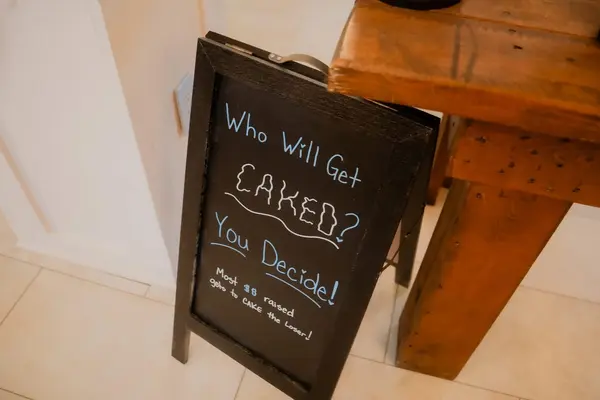 Who Will Get
CAKED?
You Decide!
Most $$ raised
gets to CAKE the Loser!